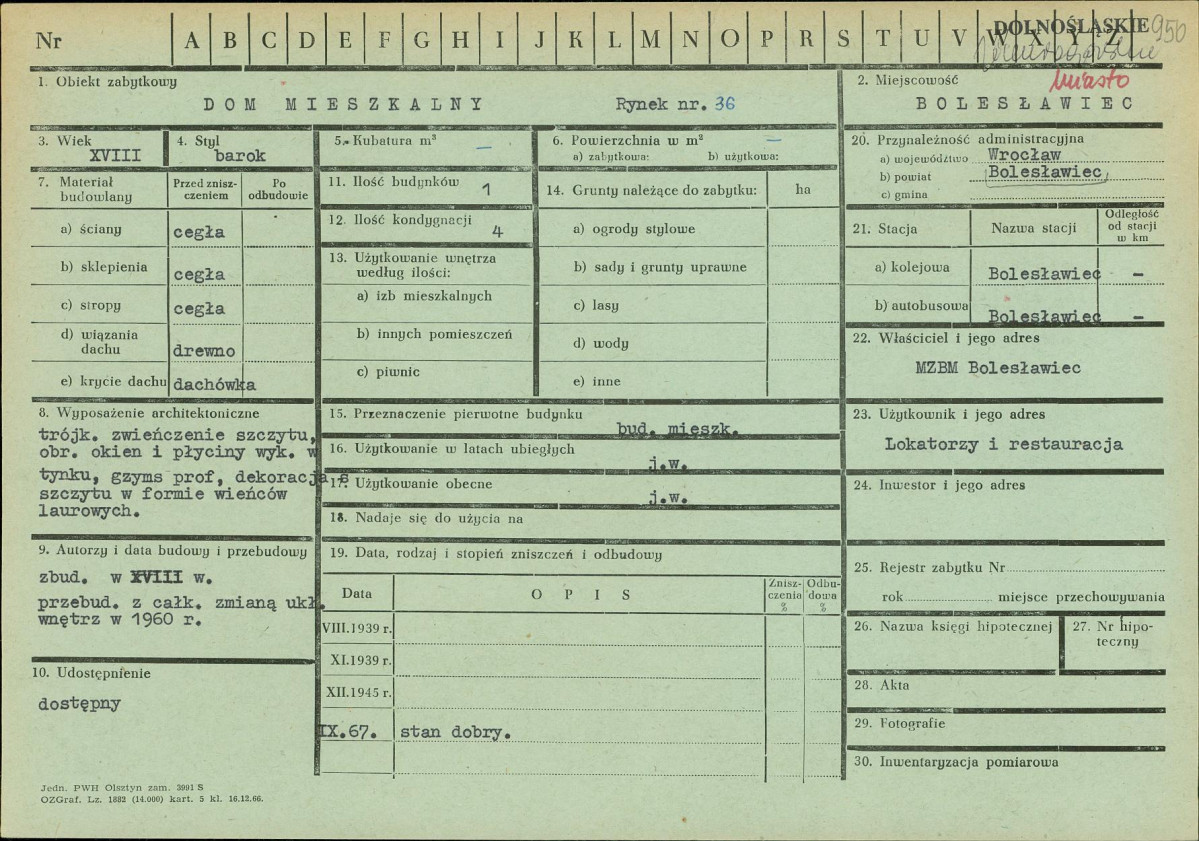 Nr A B C D E F G H I J K L M N O P R S T U V W X Y Z
DOLNOŚLĄSKIE 950
miasto
1. Obiekt zabytkowy
DOM MIESZKALNY Rynek nr. 36
2. Miejscowość
BOLESŁAWIEC
3. Wiek
XVIII
4. Styl
barok
5. Kubatura m³
—
6. Powierzchnia w m² —
a) zabytkowa: b) użytkowa:
7. Materiał budowlany
Przed zniszczeniem
Po odbudowie
a) ściany cegła
b) sklepienia cegła
c) stropy cegła
d) wiązania dachu drewno
e) krycie dachu dachówka
8. Wyposażenie architektoniczne
trójk. zwieńczenie szczytu,
obr. okien i płyciny wyk. w
tynku, gzyms prof, dekoracja s
szczytu w formie wieńców
laurowych.
9. Autorzy i data budowy i przebudowy
zbud. w XVIII w.
przebud. z całk. zmianą ukł.
wnętrz w 1960 r.
10. Udostępnienie
dostępny
11. Ilość budynków 1
12. Ilość kondygnacji 4
13. Użytkowanie wnętrza
według ilości:
a) izb mieszkalnych
b) innych pomieszczeń
c) piwnic
14. Grunty należące do zabytku: ha
a) ogrody stylowe
b) sady i grunty uprawne
c) lasy
d) wody
e) inne
15. Przeznaczenie pierwotne budynku
bud. mieszk.
16. Użytkowanie w latach ubiegłych
j.w.
17. Użytkowanie obecne
j.w.
18. Nadaje się do użycia na
19. Data, rodzaj i stopień zniszczeń i odbudowy
Data O P I S Zniszczenia % Odbudowa %
VIII.1939 r.
XI.1939 r.
XII.1945 r.
IX.67. stan dobry.
20. Przynależność administracyjna
a) województwo Wrocław
b) powiat Bolesławiec
c) gmina
21. Stacja Nazwa stacji Odległość od stacji w km
a) kolejowa Bolesławiec –
b) autobusowa Bolesławiec –
22. Właściciel i jego adres
MZBM Bolesławiec
23. Użytkownik i jego adres
Lokatorzy i restauracja
24. Inwestor i jego adres
25. Rejestr zabytku Nr
rok miejsce przechowywania
26. Nazwa księgi hipotecznej
27. Nr hipoteczny
28. Akta
29. Fotografie
30. Inwentaryzacja pomiarowa
Jedn. PWH Olsztyn zam. 3991 S
OZGraf. Lz. 1882 (14.000) kart. 5 kl. 16.12.66.